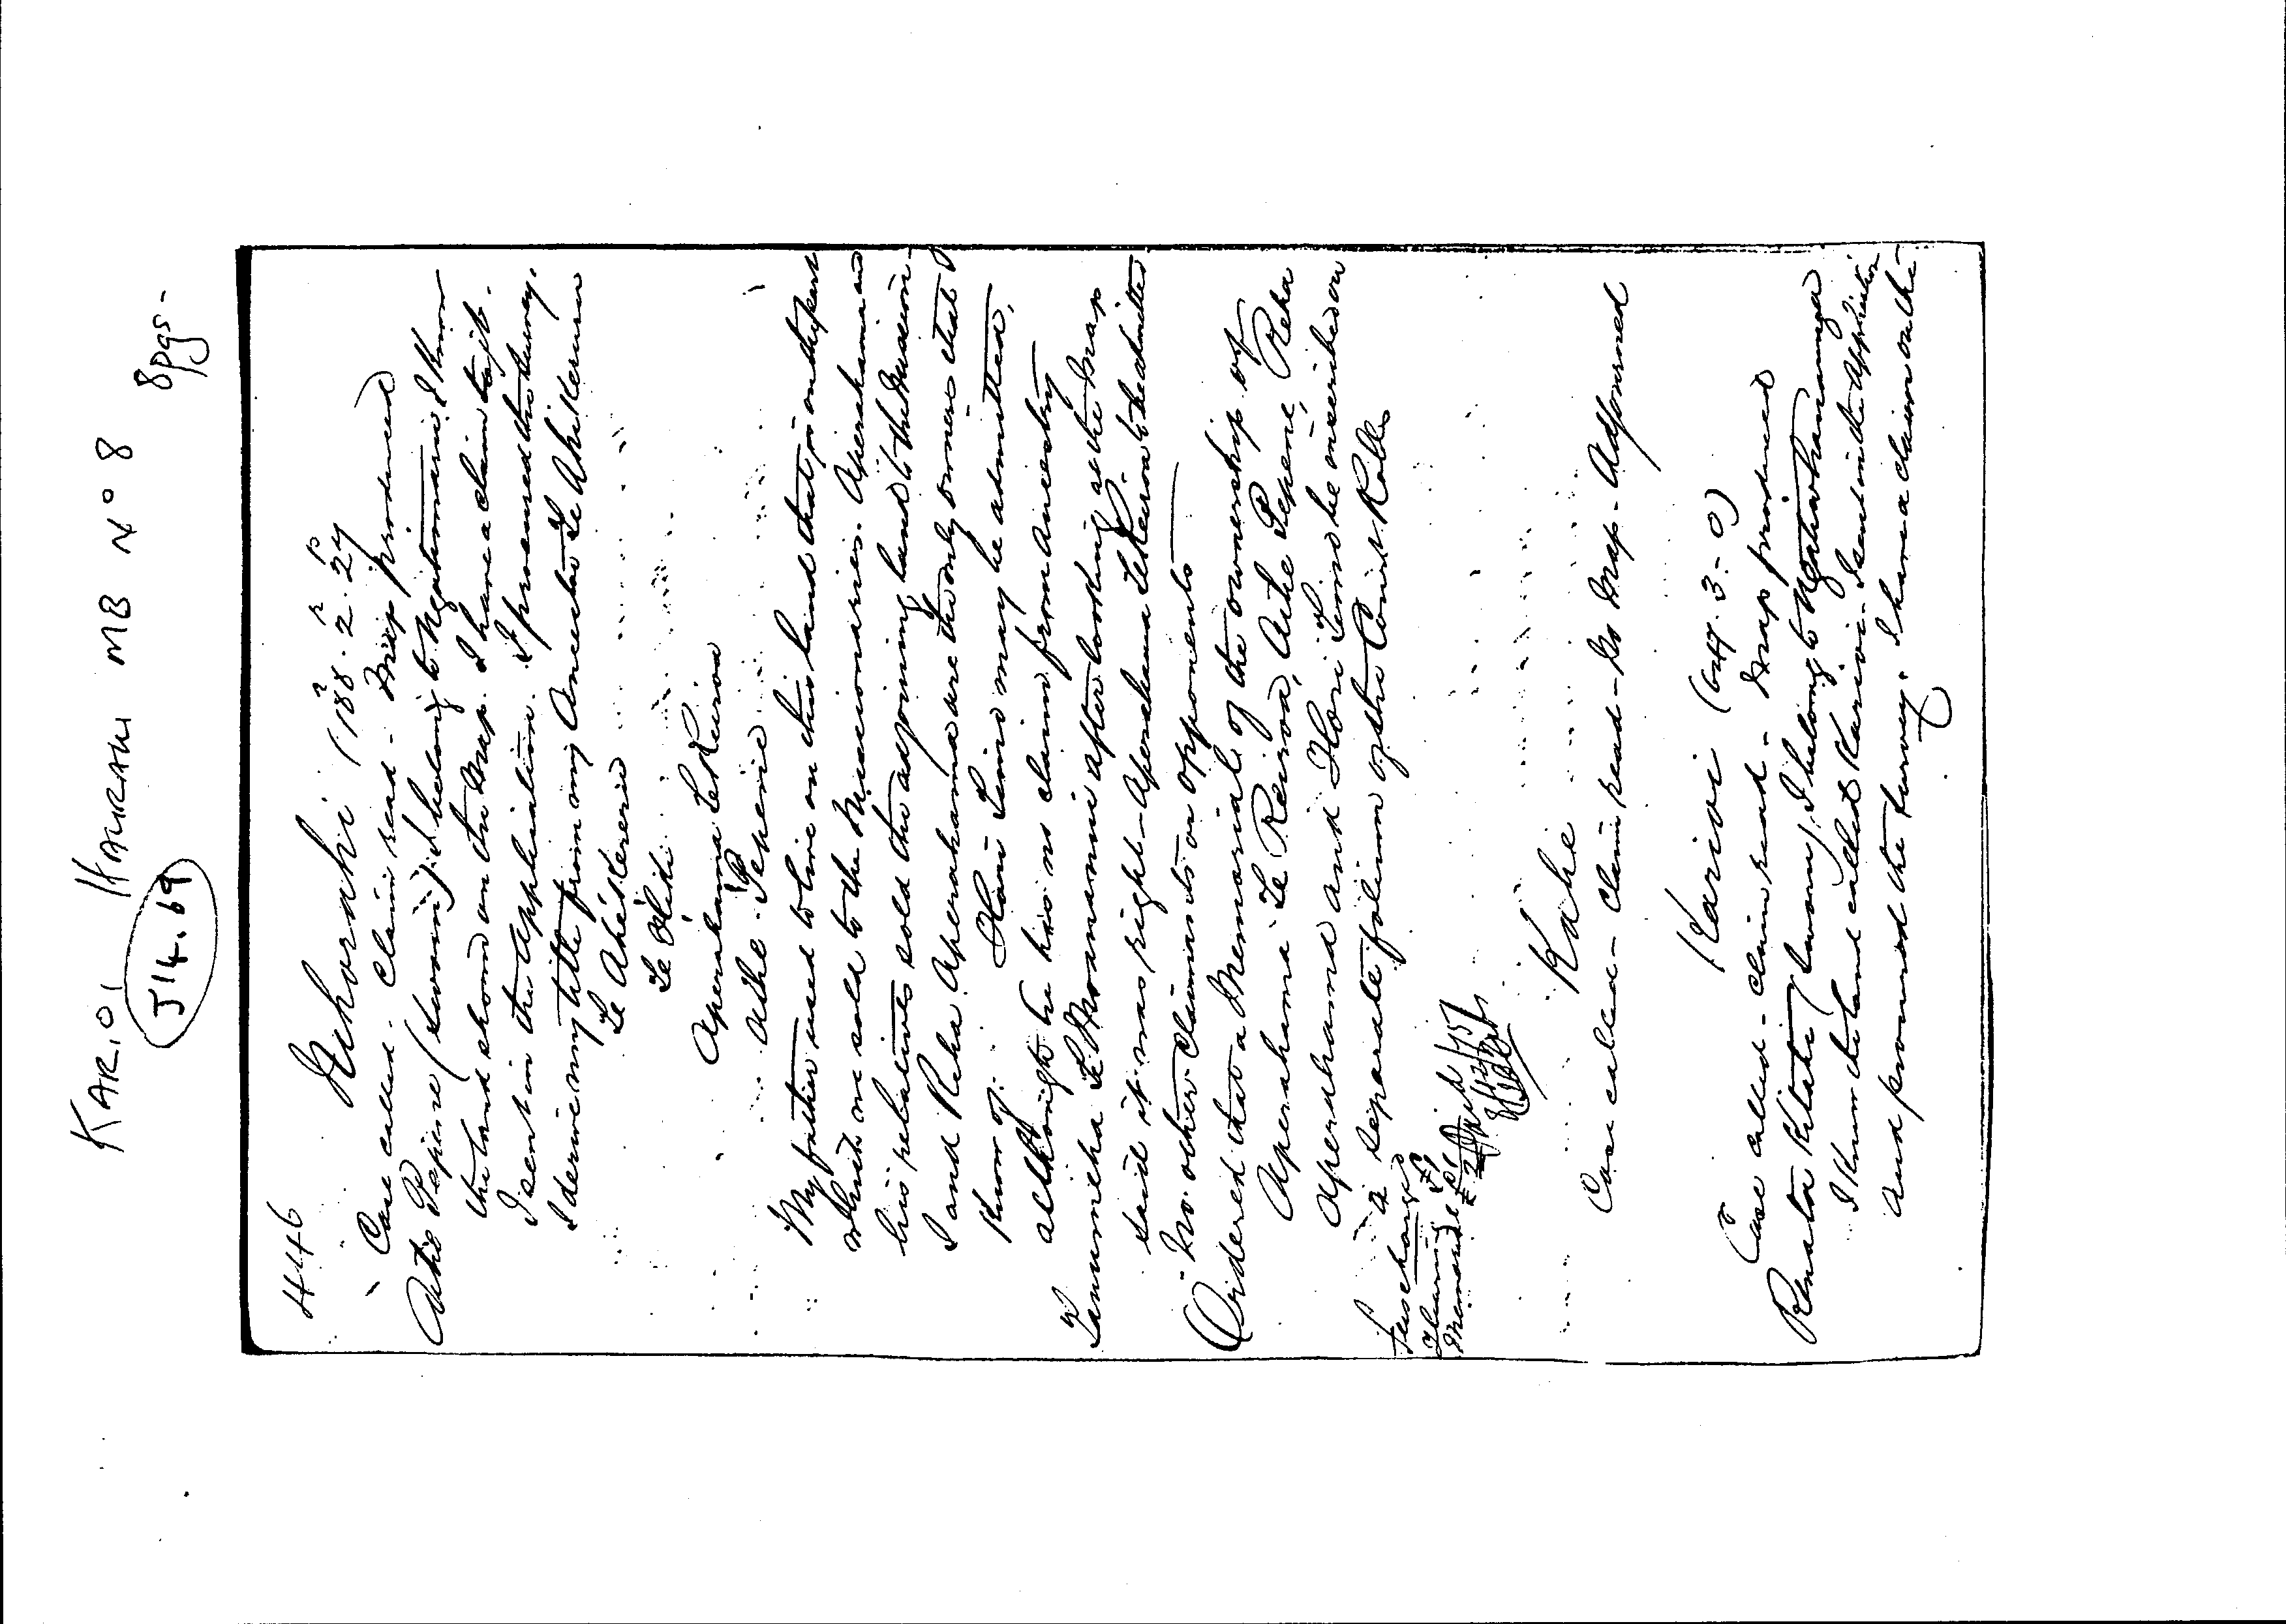 KARIOI KAIRAKI MB Nº 8 8pgs-
J14.69
446
(188. 2. 24
Case called. Claim read - Map produced
Athe Pepene (sworn) I belong to I know
the land shown on the map. I have a claim to it.
I sent in the application. I procured the survey.
I derive my title from my Ancestor Te Ahi Kereru
Te Ahi Kereru
Te
Aperahama Te Reiroa
Athe Pepene
My father used to live on this land that is on the part
which we sold to the Missionaries. Aperahama and
his relatives sold the adjoining land to the Missions.
I and Reha Aperahama are the only owners that I
know of. Hori Temo may be admitted,
although he has no claim from ancestry
after looking at the map
said it was right - Aperahama Te Reiroa to be admitted
No other Claimants or opponents
Ordered that a Memorial of the ownership of
Aperahama Te Reiroa, Athe Pepene, Reha
Aperahama and Hori Temo be inscribed on
a separate folium of the Court Rolls
Fees charged
Hearing £1
Memorial £1
£2 Paid
Kahe
Case called - Claim read - No Map - Adjourned
Karioi (647. 3. 0)
Case called - claim read - Map produced
Renata Kitahi (sworn) I belong to
I know the land called Karioi - I sent in the application
and procured the survey. I have a claim on the